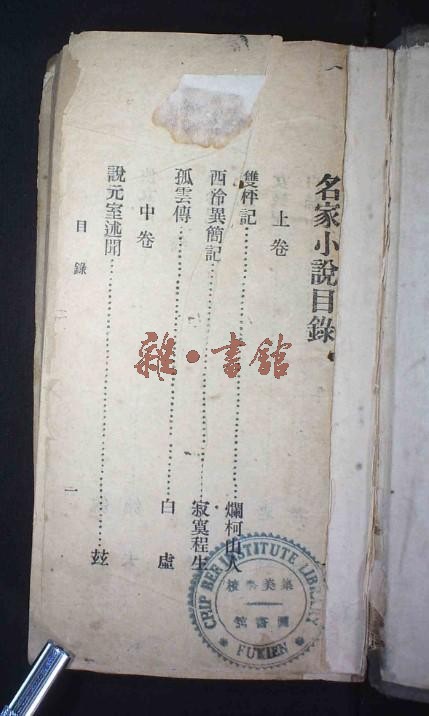 名家小說目錄
上卷
雙枰記 爛柯山人
西泠異簡記 寂寞程生
孤雲傳 白虛
中卷
說元室述聞 玆
目錄 一
雜·書館
CHIP BEE INSTITUTE LIBRARY
集美學校
圖書館
FUKIEN